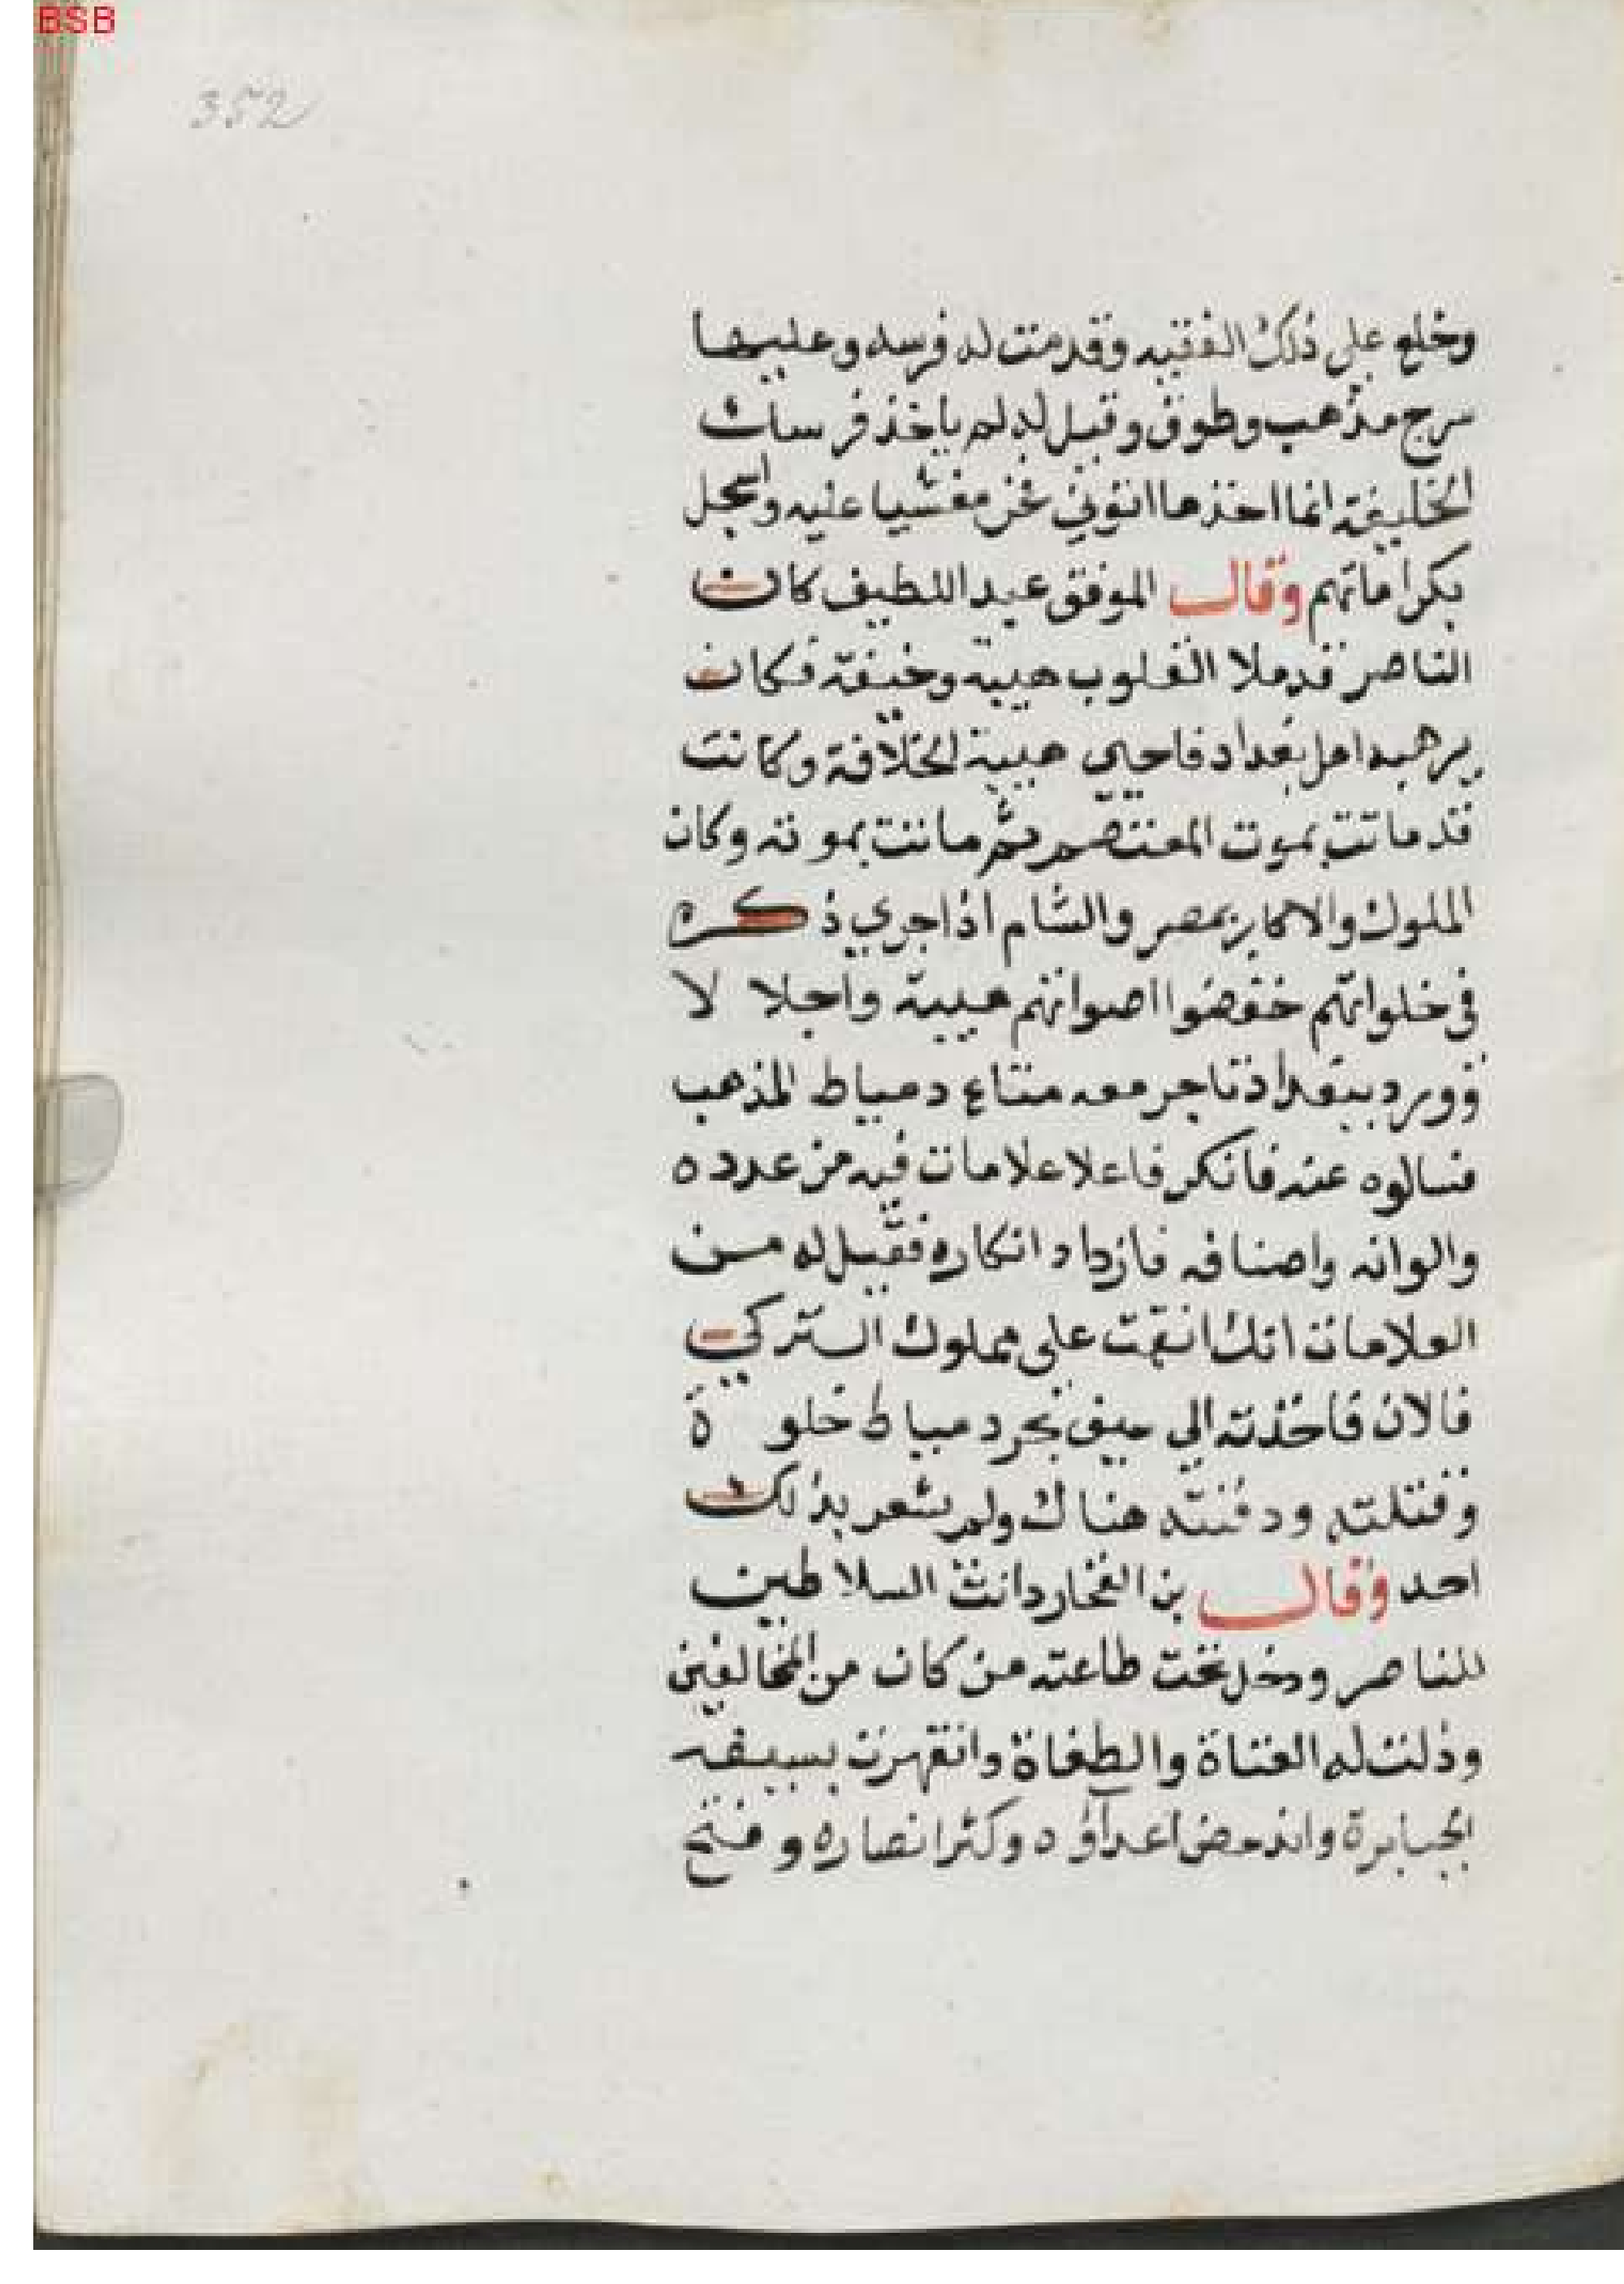 BSB
352
وخلع على ذلك الفقيه وقدمت له فرسه وعليها
سرج مذهب وطوق وقيل له لم ياخذ فرسك
الخليفة انما اخذها اتوني فخر مغشيا عليه واسجل
بكراماتهم وقال الموفق عبد اللطيف كان
الناصر قد ملا القلوب هيبة وخيفة فكان
يرهبه اهل بغداد فاحيي هيبة الخلافة وكانت
قد ماتت بموت المعتصم ثم ماتت بموته وكان
الملوك والاكابر بمصر والشام اذا جري ذكره
في خلواتهم خفضوا اصواتهم هيبة واجلا لا
فورد ببغداد تاجر معه متاع دمياط المذهب
فسالوه عنه فانكر فاعلا علامات فيه من عدده
والوانه واصنافه فازداد انكاره فقيل له من
العلامات انك انقمت على مملوك التركي
فلان فاخذته الي سيف بحر دمياط خلوة
وقتلته ودفنته هناك ولم يشعر بذلك
احد وقال بن الفخار دانت السلاطين
للناصر ودخل تحت طاعته من كان من المخالفين
وذلت له العتاة والطغاة وانقهرت بسيفه
الجبابرة واندحض اعداؤه وكثر انصاره وفتح